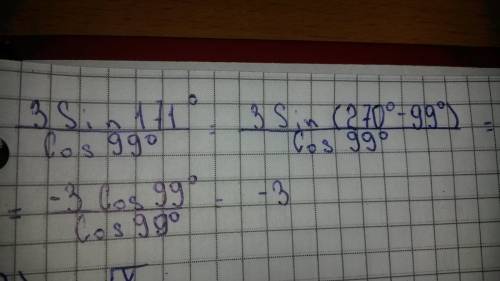 3 Sin 171° / Cos 99° = 3 Sin (270° - 99°) / Cos 99° =
= -3 Cos 99° / Cos 99° = -3